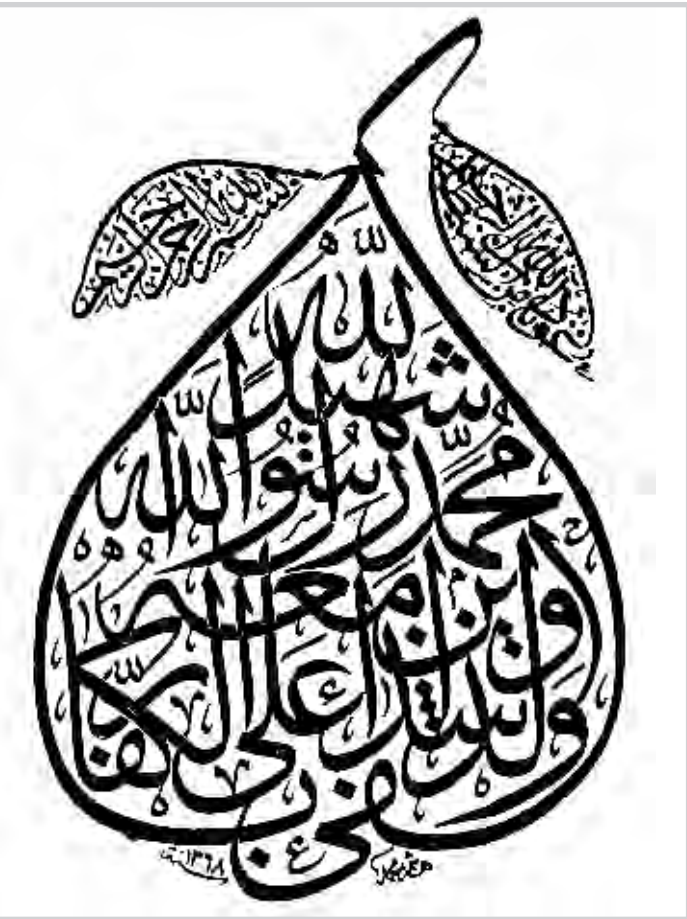 بسم الله الرحمن الرحيم
وكفى بالله شهيدا
محمد رسول الله
والذين معه
أشداء على الكفار
١٣٦٨